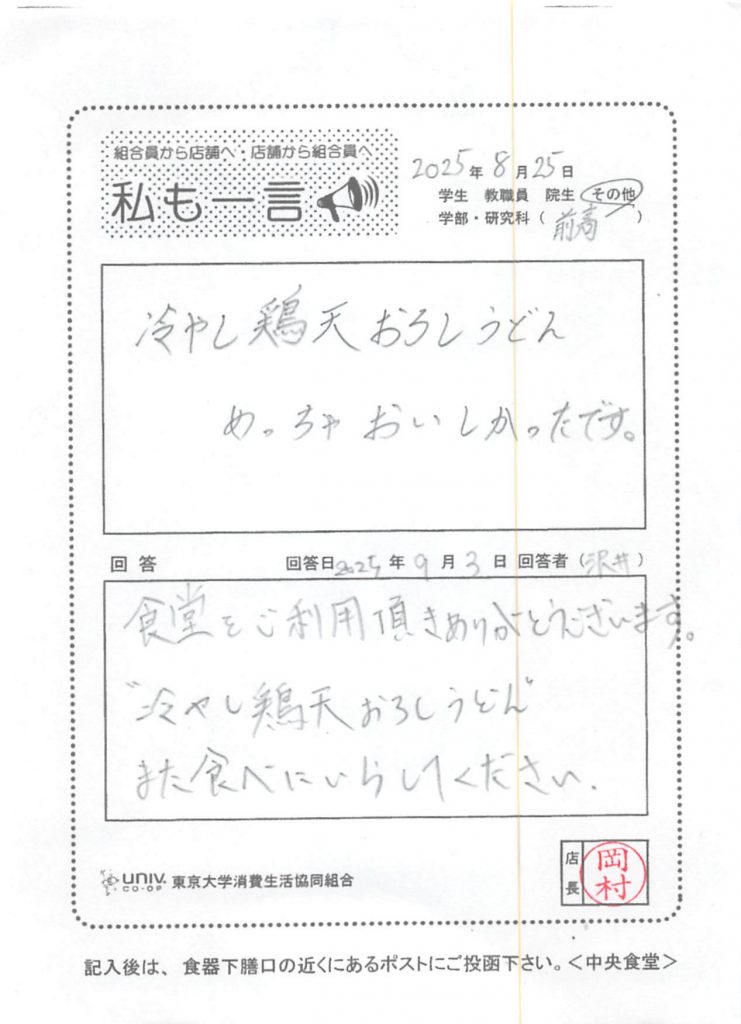 組合員から店舗へ・店舗から組合員へ
私も一言
2025年8月25日
学生 教職員 院生 その他
学部・研究科（前期）
冷やし鶏天おろしうどん
めっちゃおいしかったです。
回答 回答日2025年9月3日 回答者（沢井）
食堂をご利用頂きありがとうございます。
"冷やし鶏天おろしうどん"
また食べにいらしてください.
UNIV. CO-OP 東京大学消費生活協同組合
店長 岡村
記入後は、食器下膳口の近くにあるポストにご投函下さい。＜中央食堂＞